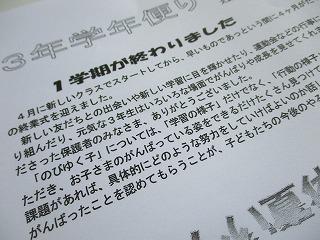 ３年学年便り
１学期が終わりました
４月に新しいクラスでスタートしてから、早いものであっという間に４ヶ月がた
の終業式を迎えました。
新しい友だちとの出会いや新しい学習に目を輝かせたり、運動会などの行事に
り組んだり、元気な３年生はいろいろな場面でがんばりや成長を見せてくれ
だきった保護者のみなさま、ありがとうございました。
「のびゆく子」については、「学習の様子」だけでなく、「行動の様子
ただき、お子さまのがんばっている姿をできるだけたくさん見つけて
課題があれば、具体的にどのような努力をしていけばよいのか話
がんばったことを認めてもらうことが、子どもたちの今後のや